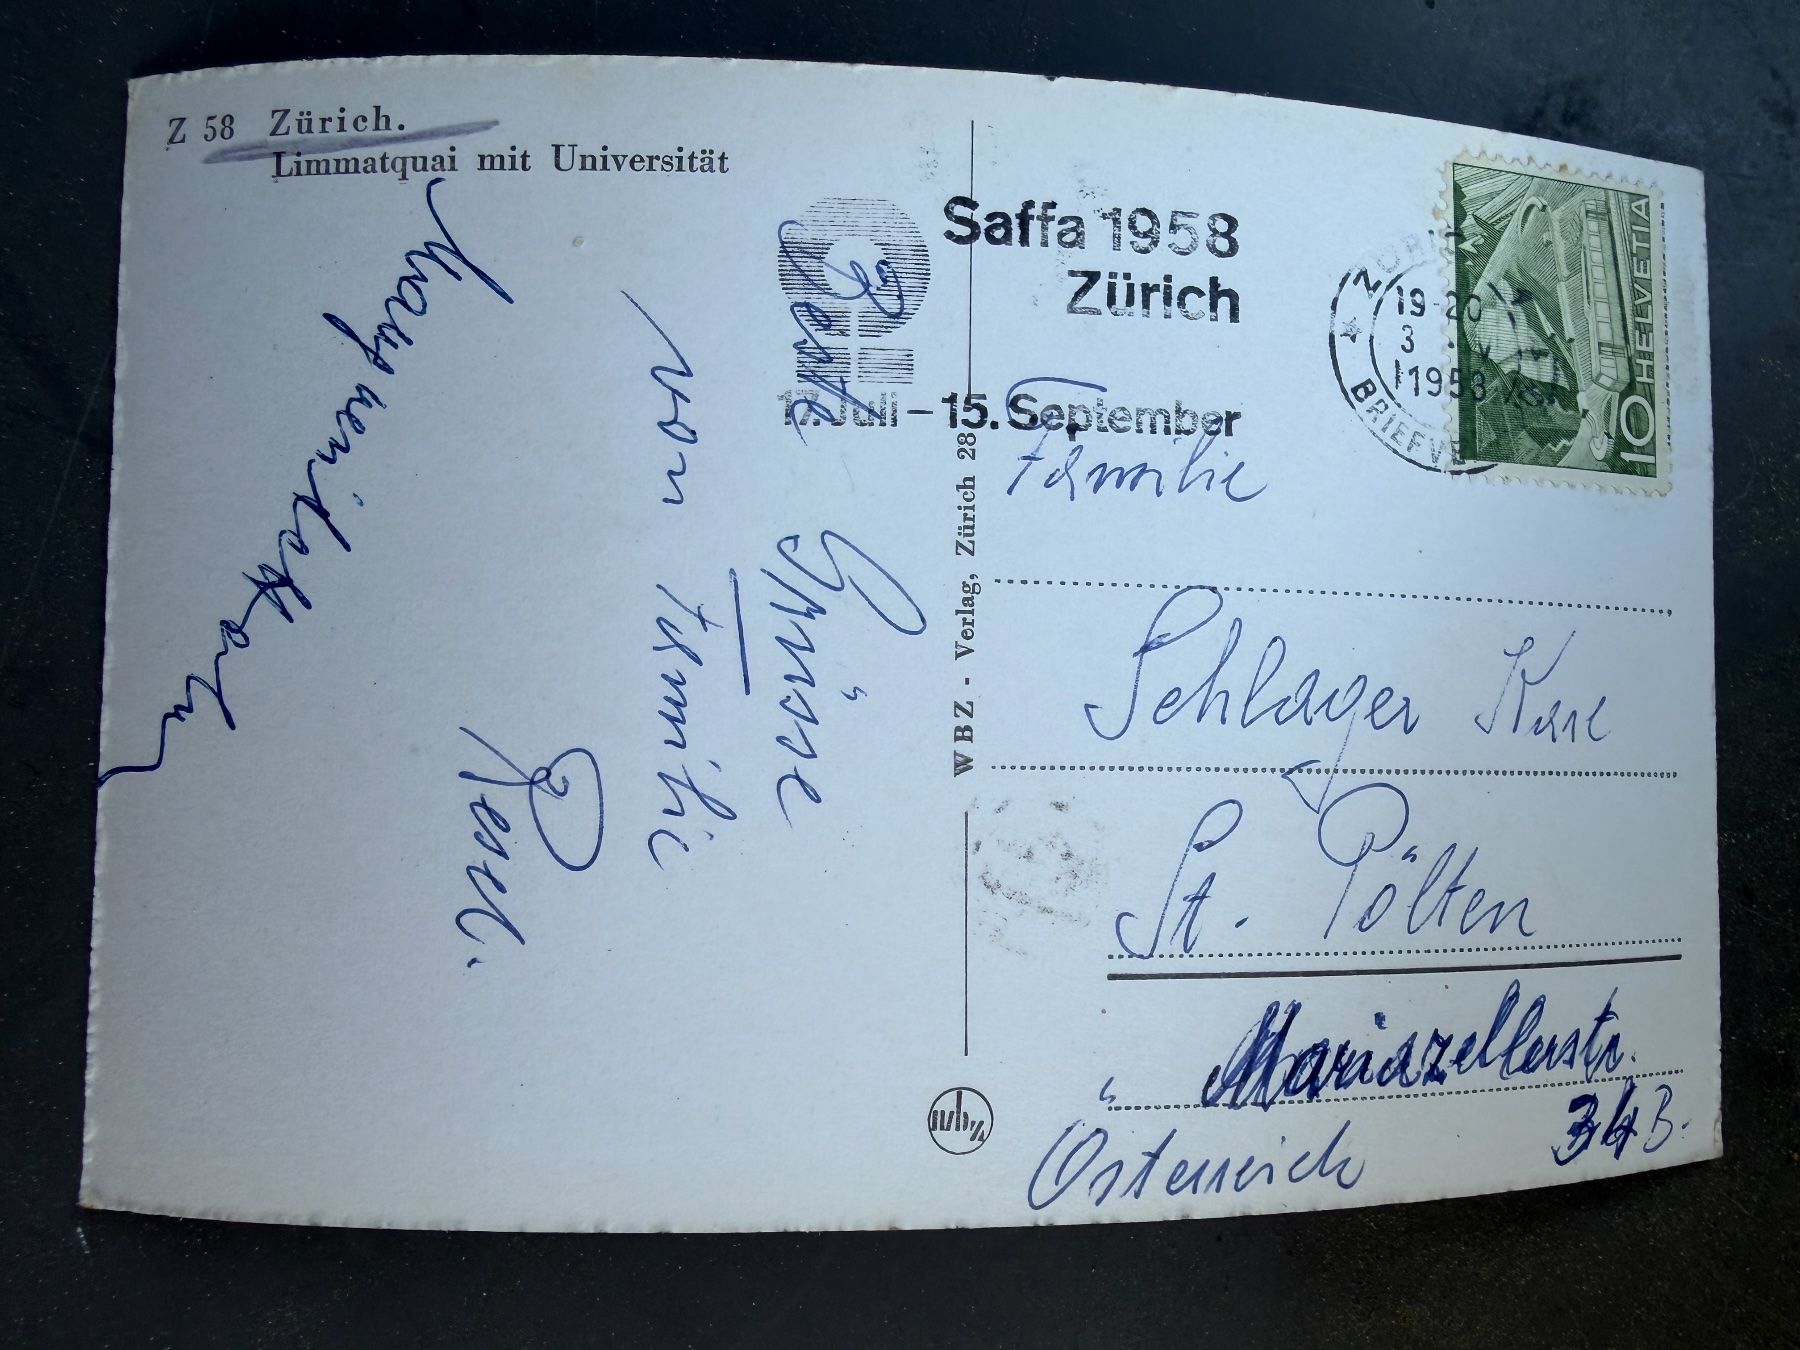 Z 58 Zürich.
Limmatquai mit Universität
Beste
Grüsse
von Familie
Resel.
Saffa 1958
Zürich
17. Juli – 15. September
19-20
3
1958
BRIEFV
HELVETIA
10
WBZ - Verlag, Zürich 28
Familie
Schlager
St. Pölten
Mariazellerstr.
34 B.
Österreich
wbz